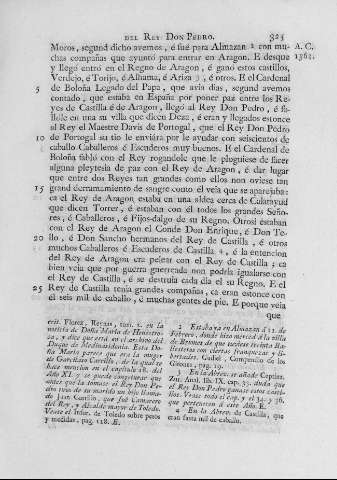 DEL REY DON PEDRO. 325
Moros, segund dicho avemos, é fué para Almazan 2 con mu- A. C.
chas compañas que ayuntó para entrar en Aragon. E desque 1362.
y llegó entró en el Regno de Aragon, é ganó estos castillos,
Verdejo, é Torijo, é Alhama, é Ariza 3, é otros. E el Cardenal
5 de Boloña Legado del Papa, que avia dias, segund avemos
contado, que estaba en España por poner paz entre los Re-
yes de Castilla é de Aragon, llegó al Rey Don Pedro, é fa-
llole en una su villa que dicen Deza, é eran y llegados estonce
al Rey el Maestre Davis de Portogal, que el Rey Don Pedro
10 de Portogal su tio le enviára por le ayudar con seiscientos de
caballo Caballeros é Escuderos muy buenos. E el Cardenal de
Boloña fabló con el Rey rogandole que le ploguiese de facer
alguna pleytesia de paz con el Rey de Aragon, é dar lugar
que entre dos Reyes tan grandes como ellos non oviese tan
15 grand derramamiento de sangre como él veía que se aparejaba:
ca el Rey de Aragon estaba en una aldea cerca de Calatayud
que dicen Torrer, é estaban con él todos los grandes Seño-
res, é Caballeros, é Fijos-dalgo de su Regno. Otrosi estaban
con el Rey de Aragon el Conde Don Enrique, é Don Te-
20 llo, é Don Sancho hermanos del Rey de Castilla, é otros
muchos Caballeros é Escuderos de Castilla 4, é la entencion
del Rey de Aragon era pelear con el Rey de Castilla; ca
bien veía que por guerra guerreada non podria igualarse con
el Rey de Castilla, é se destruía cada dia el su Regno. E el
25 Rey de Castilla tenia grandes compañas, ca eran estonce con
él seis mil de caballo, é muchas gentes de pie. E porque veía
que
crit. Florez, Reynas, tom. 2. en la
noticia de Doña María de Henestro-
sa, y dice que está en el archivo del
Duque de Medinasidonia. Esta Do-
ña María parece que era la muger
de Garcilaso Carrillo, de la qual se
hace mencion en el capítulo 18. del
Año XI. y se puede conjeturar que
antes que la tomase el Rey Don Pe-
dro tuvo de su marido un hijo llama-
do Juan Carrillo, que fué Camarero
del Rey, y Alcalde mayor de Toledo.
Vease el Indice de Toledo sobre pesos
y medidas, pag. 118. E.
2 Estaba ya en Almazan á 12. de
Febrero, donde hizo merced á la villa
de
que tuviese veinte Ba-
llesteros con ciertas franquezas y li-
bertades. Gudiel, Compendio de los
Girones, pag. 19.
3 En la Abrev. se añade Ceptina.
Zur. Anal. lib. IX. cap. 33. duda que
el Rey Don Pedro ganase estos casti-
llos. Vease todo el cap. y el 34. y 36.
que pertenecen á este Año. E.
4 En la Abrev. de Castilla, que
eran fasta mil de caballo.